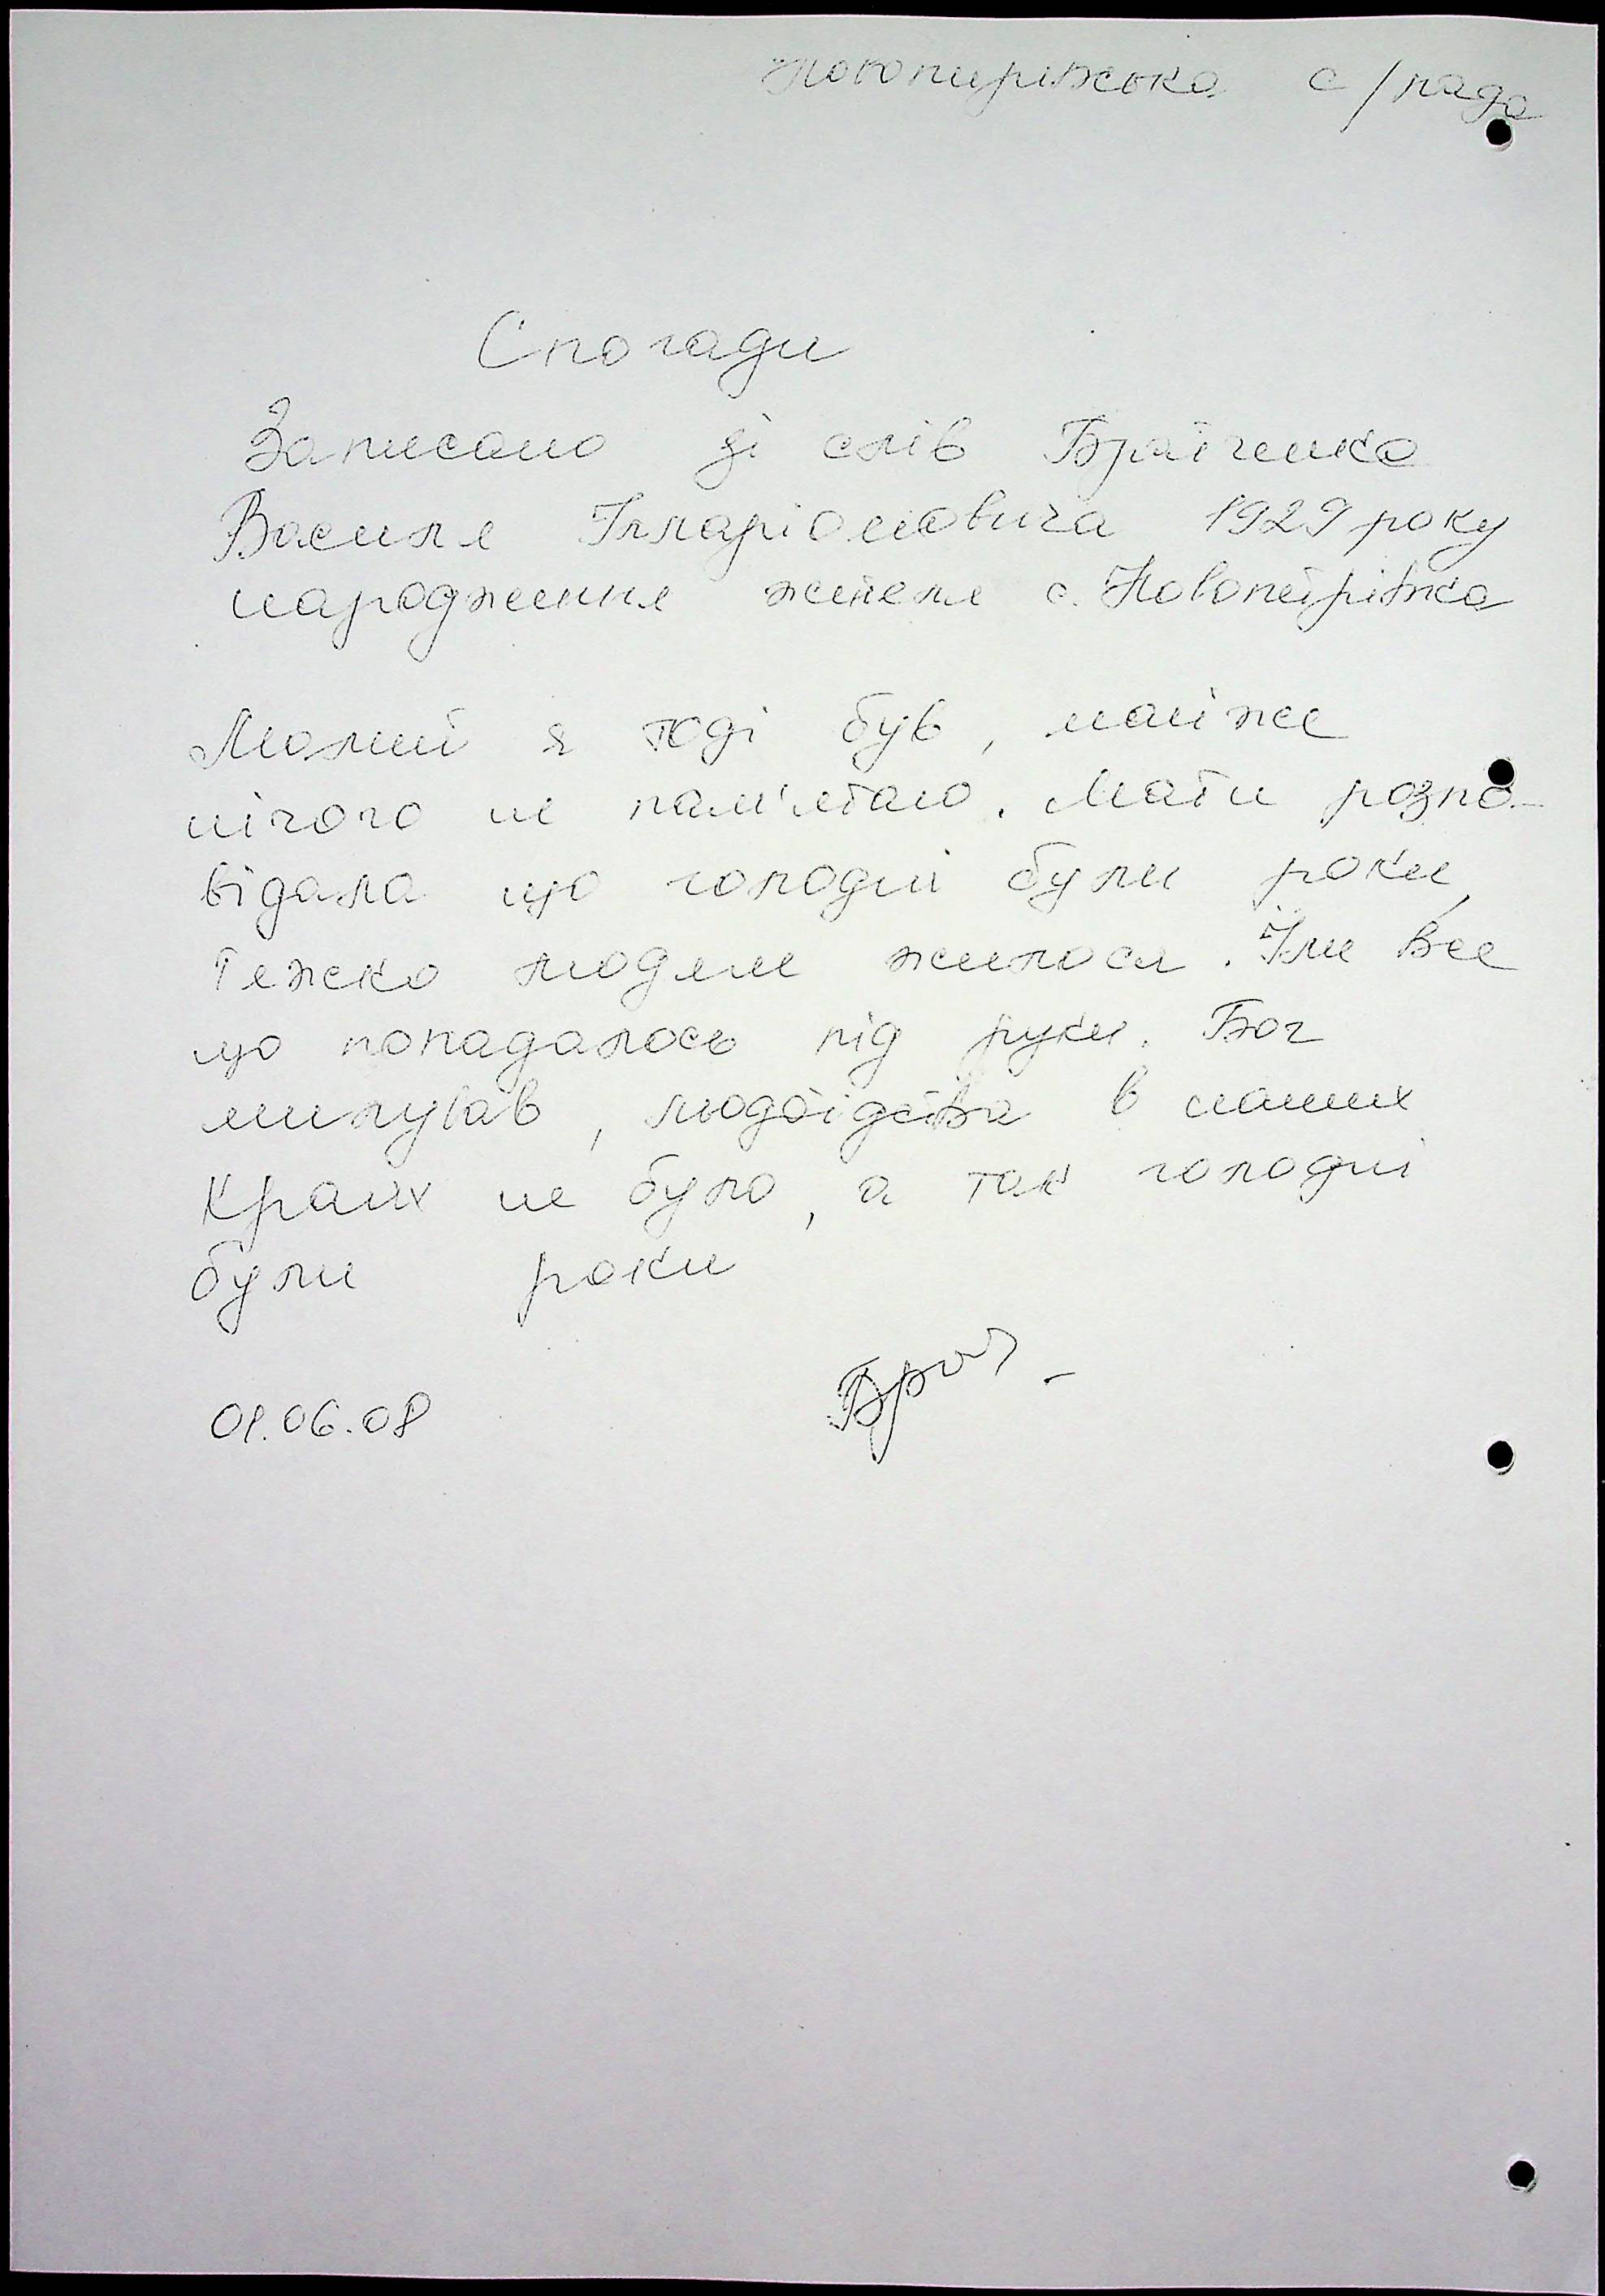 Новопетрівська с/рада
Спогади
Записано зі слів Браїченка
Василя Ілларіоновича 1929 року
народження жителя с. Новопетрівка
Малий я тоді був, майже
нічого не пам'ятаю. Мати розпо-
відала що голодні були роки,
тяжко людям жилося. Їли все
що попадалось під руки. Бог
милував, людоїдства в наших
краях не було, а так голодні
були роки
01.06.08